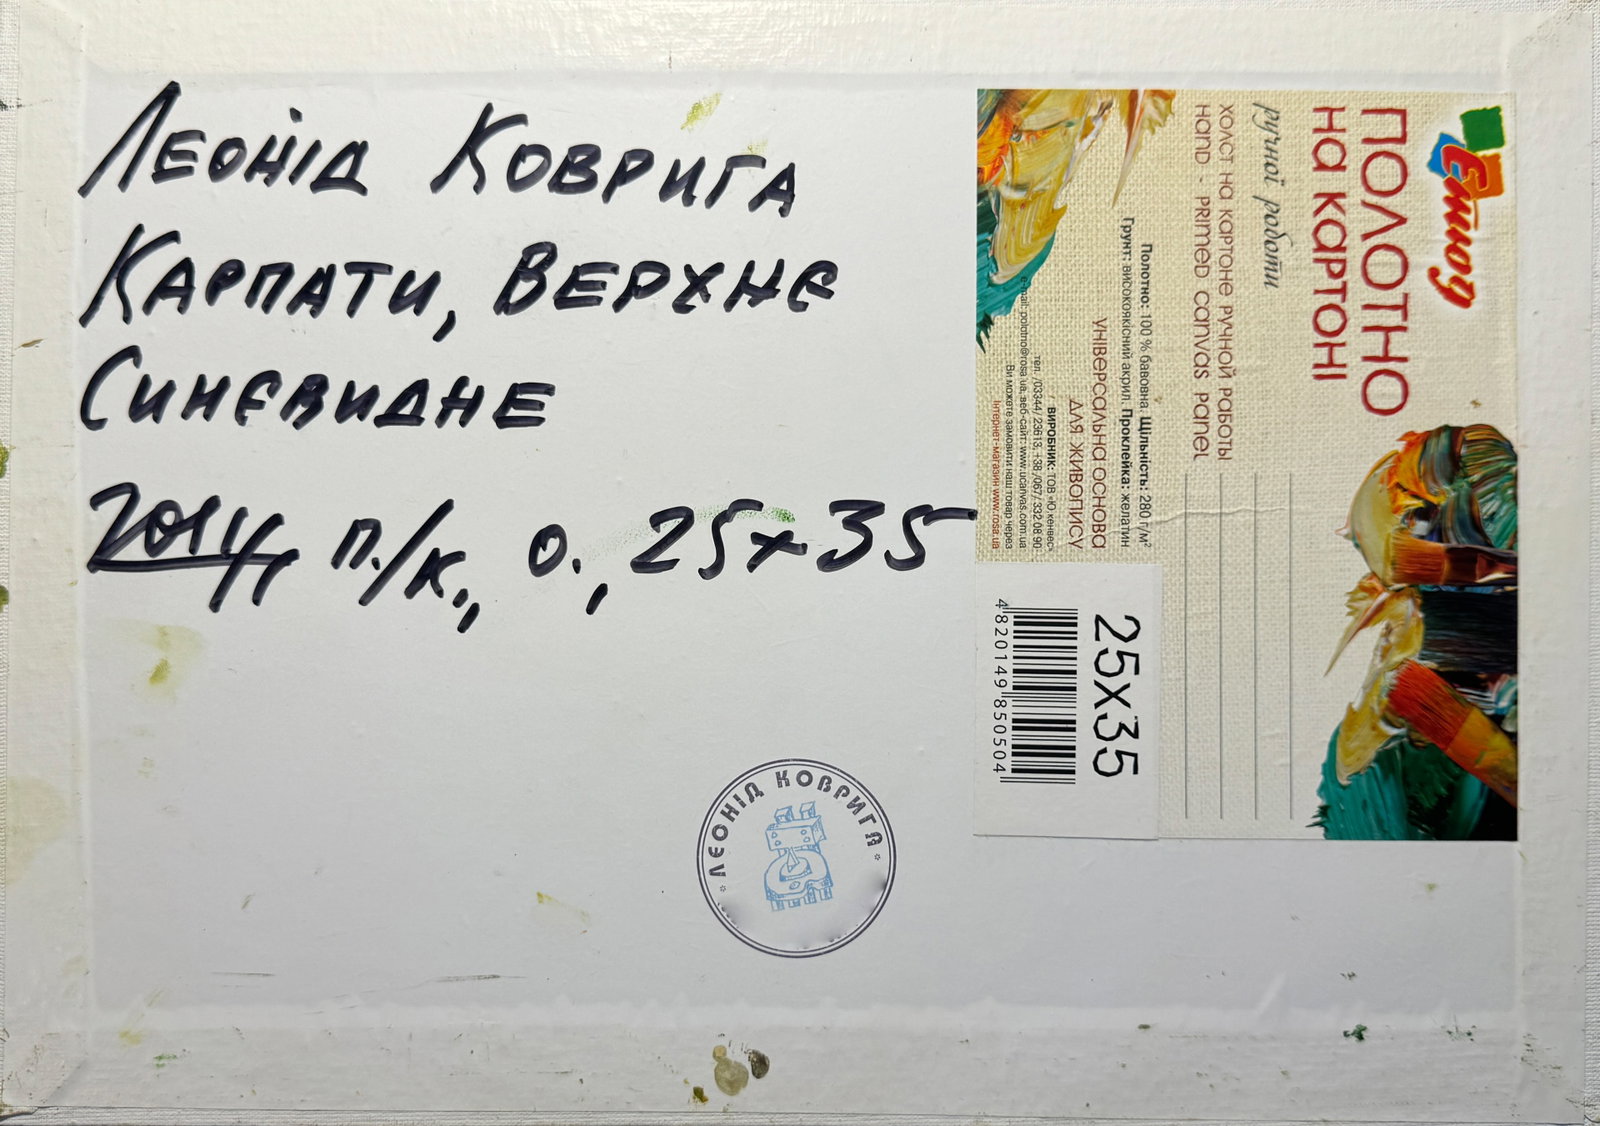 Леонід Коврига
Карпати, Верхнє
Синєвидне
2014, п./к., о., 25х35
Етюд
ПОЛОТНО
на картоні
ручної роботи
холст на картоне ручной работы
hand - primed canvas panel
Полотно: 100 % бавовна. Щільність: 280 г/м²
Грунт: високоякісний акрил. Проклейка: желатин
універсальна основа
для живопису
ВИРОБНИК: ТОВ «Ю.кенвес»
тел. /03344/ 23613, +38 /067/ 332 08 90
e-mail: polotno@rosa.ua, веб-сайт: www.ucanvas.com.ua
Ви можете замовити наш товар через
Інтернет-магазин www.rosa.ua
25x35
4820149850504
ЛЕОНІД КОВРИГА